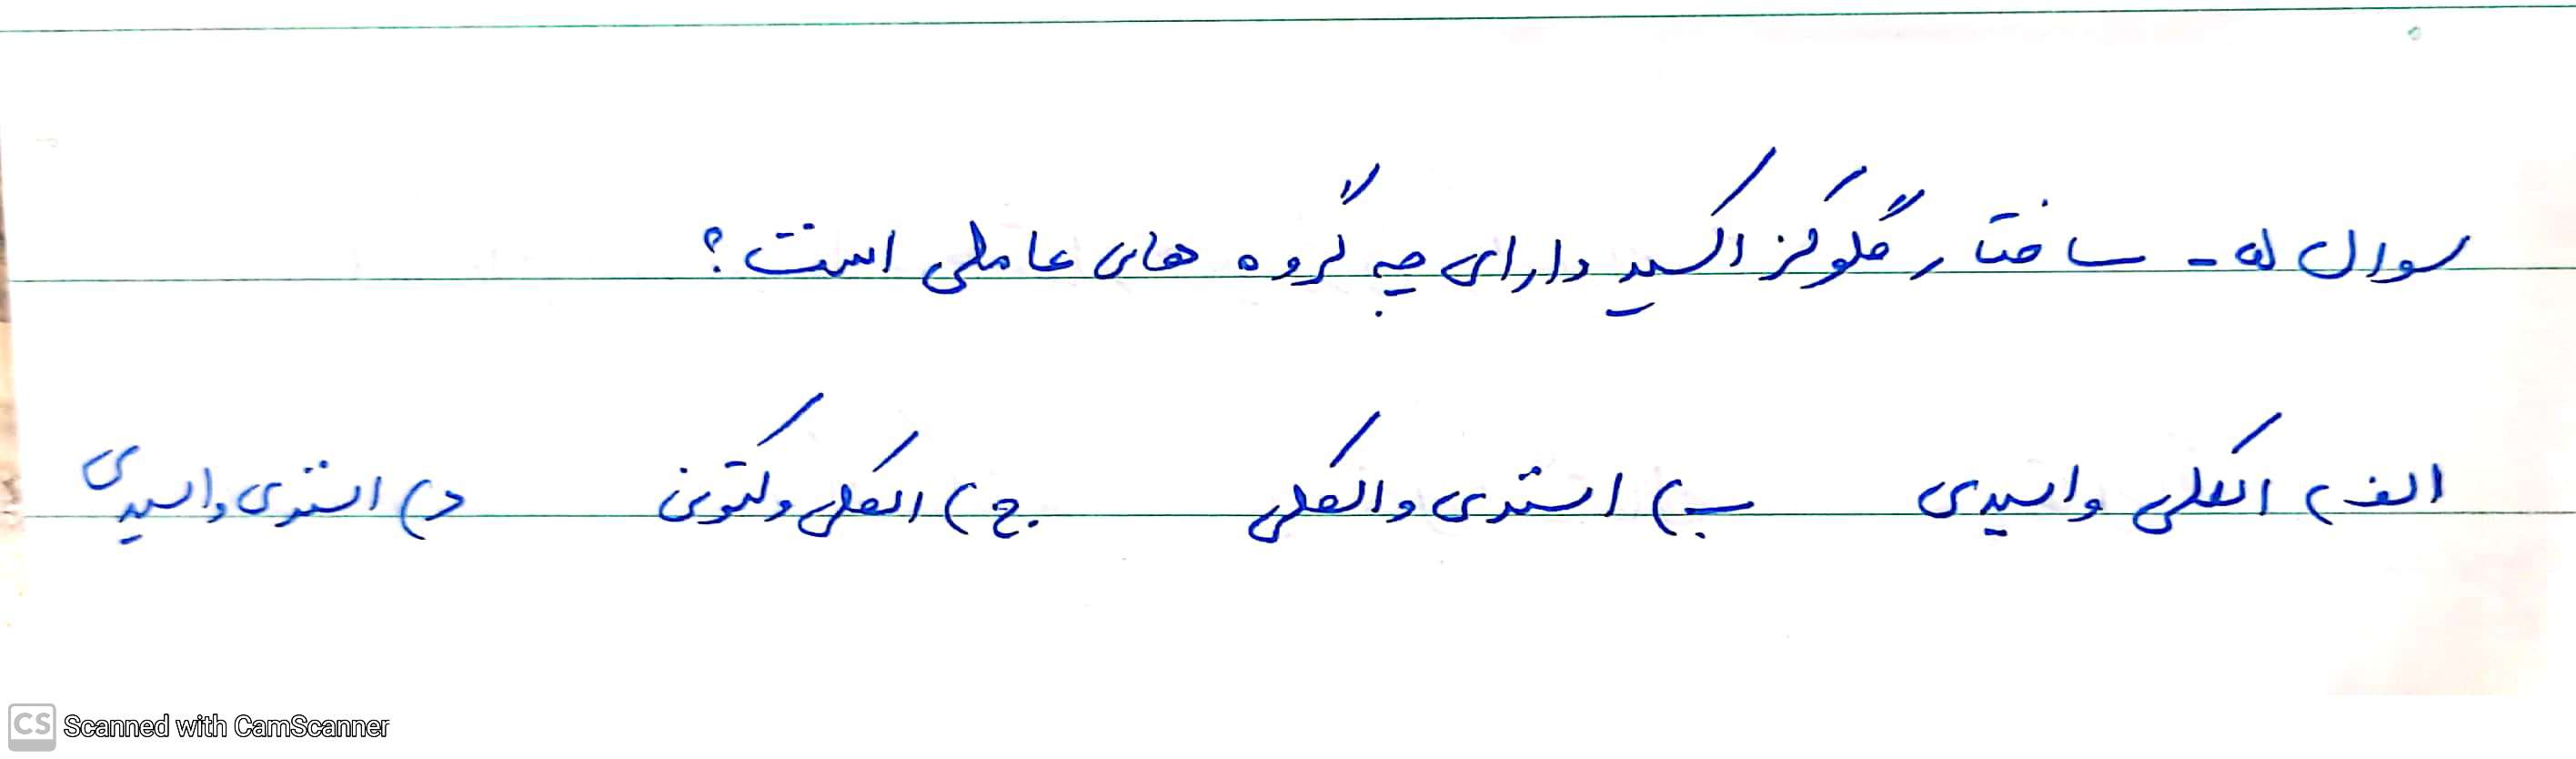 سوال ۵- ساختار گلوکز اکسید دارای چه گروه های عاملی است؟
الف) الکلی و اسیدی ب) استری و الکلی ج) الکلی و کتون د) استری و اسیدی
CS Scanned with CamScanner